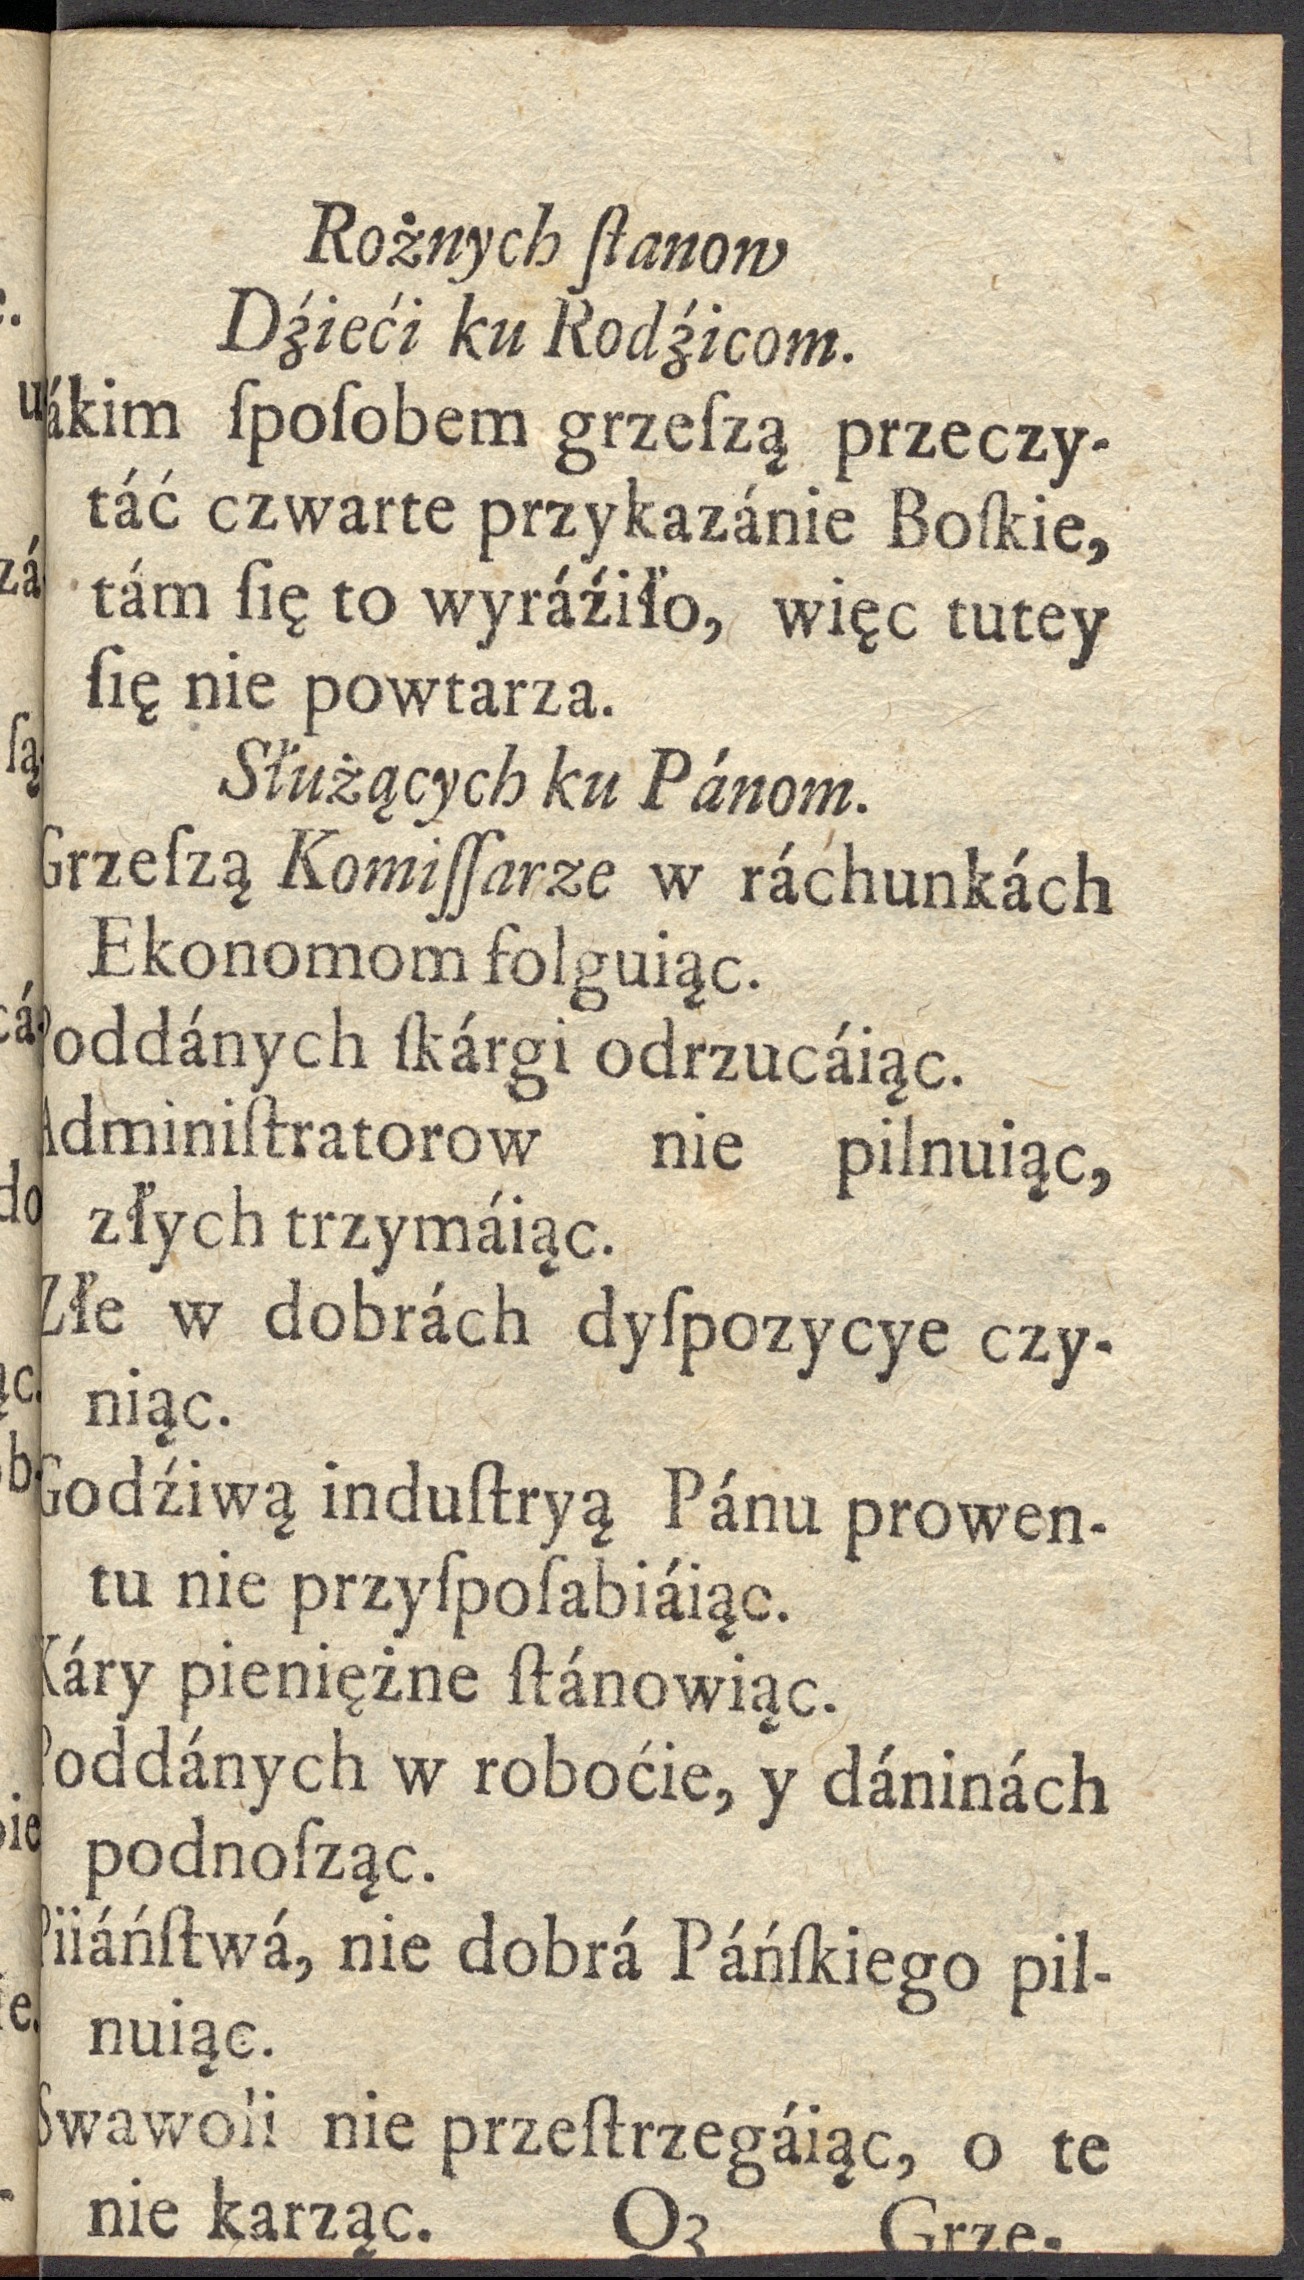 Rożnych ſtanow
Dźieći ku Rodźicom.
ákim ſpoſobem grzeſzą przeczy-
táć czwarte przykazánie Boſkie,
tám ſię to wyráźiło, więc tutey
ſię nie powtarza.
Służących ku Pánom.
Grzeſzą Komiſſarze w ráchunkách
Ekonomom folguiąc.
Poddánych ſkárgi odrzucáiąc.
Adminiſtratorow nie pilnuiąc,
złych trzymáiąc.
Złe w dobrách dyſpozycye czy-
niąc.
Godźiwą induſtryą Pánu prowen-
tu nie przyſpoſabiáiąc.
Káry pieniężne ſtánowiąc.
Poddánych w roboćie, y dáninách
podnoſząc.
Piiáńſtwá, nie dobrá Páńſkiego pil-
nuiąc.
Swawoli nie przeſtrzegáiąc, o te
nie karząc. Q3 Grze-